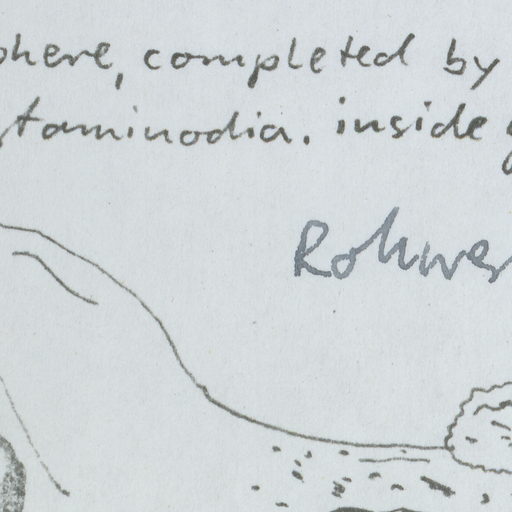 phere, completed by
staminodia. inside
Rohwer